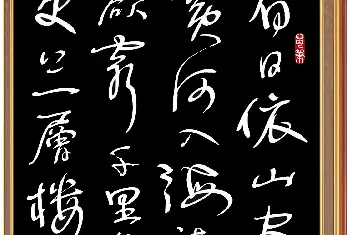 白日依山尽
黄河入海流
欲窮千里
更上一層樓